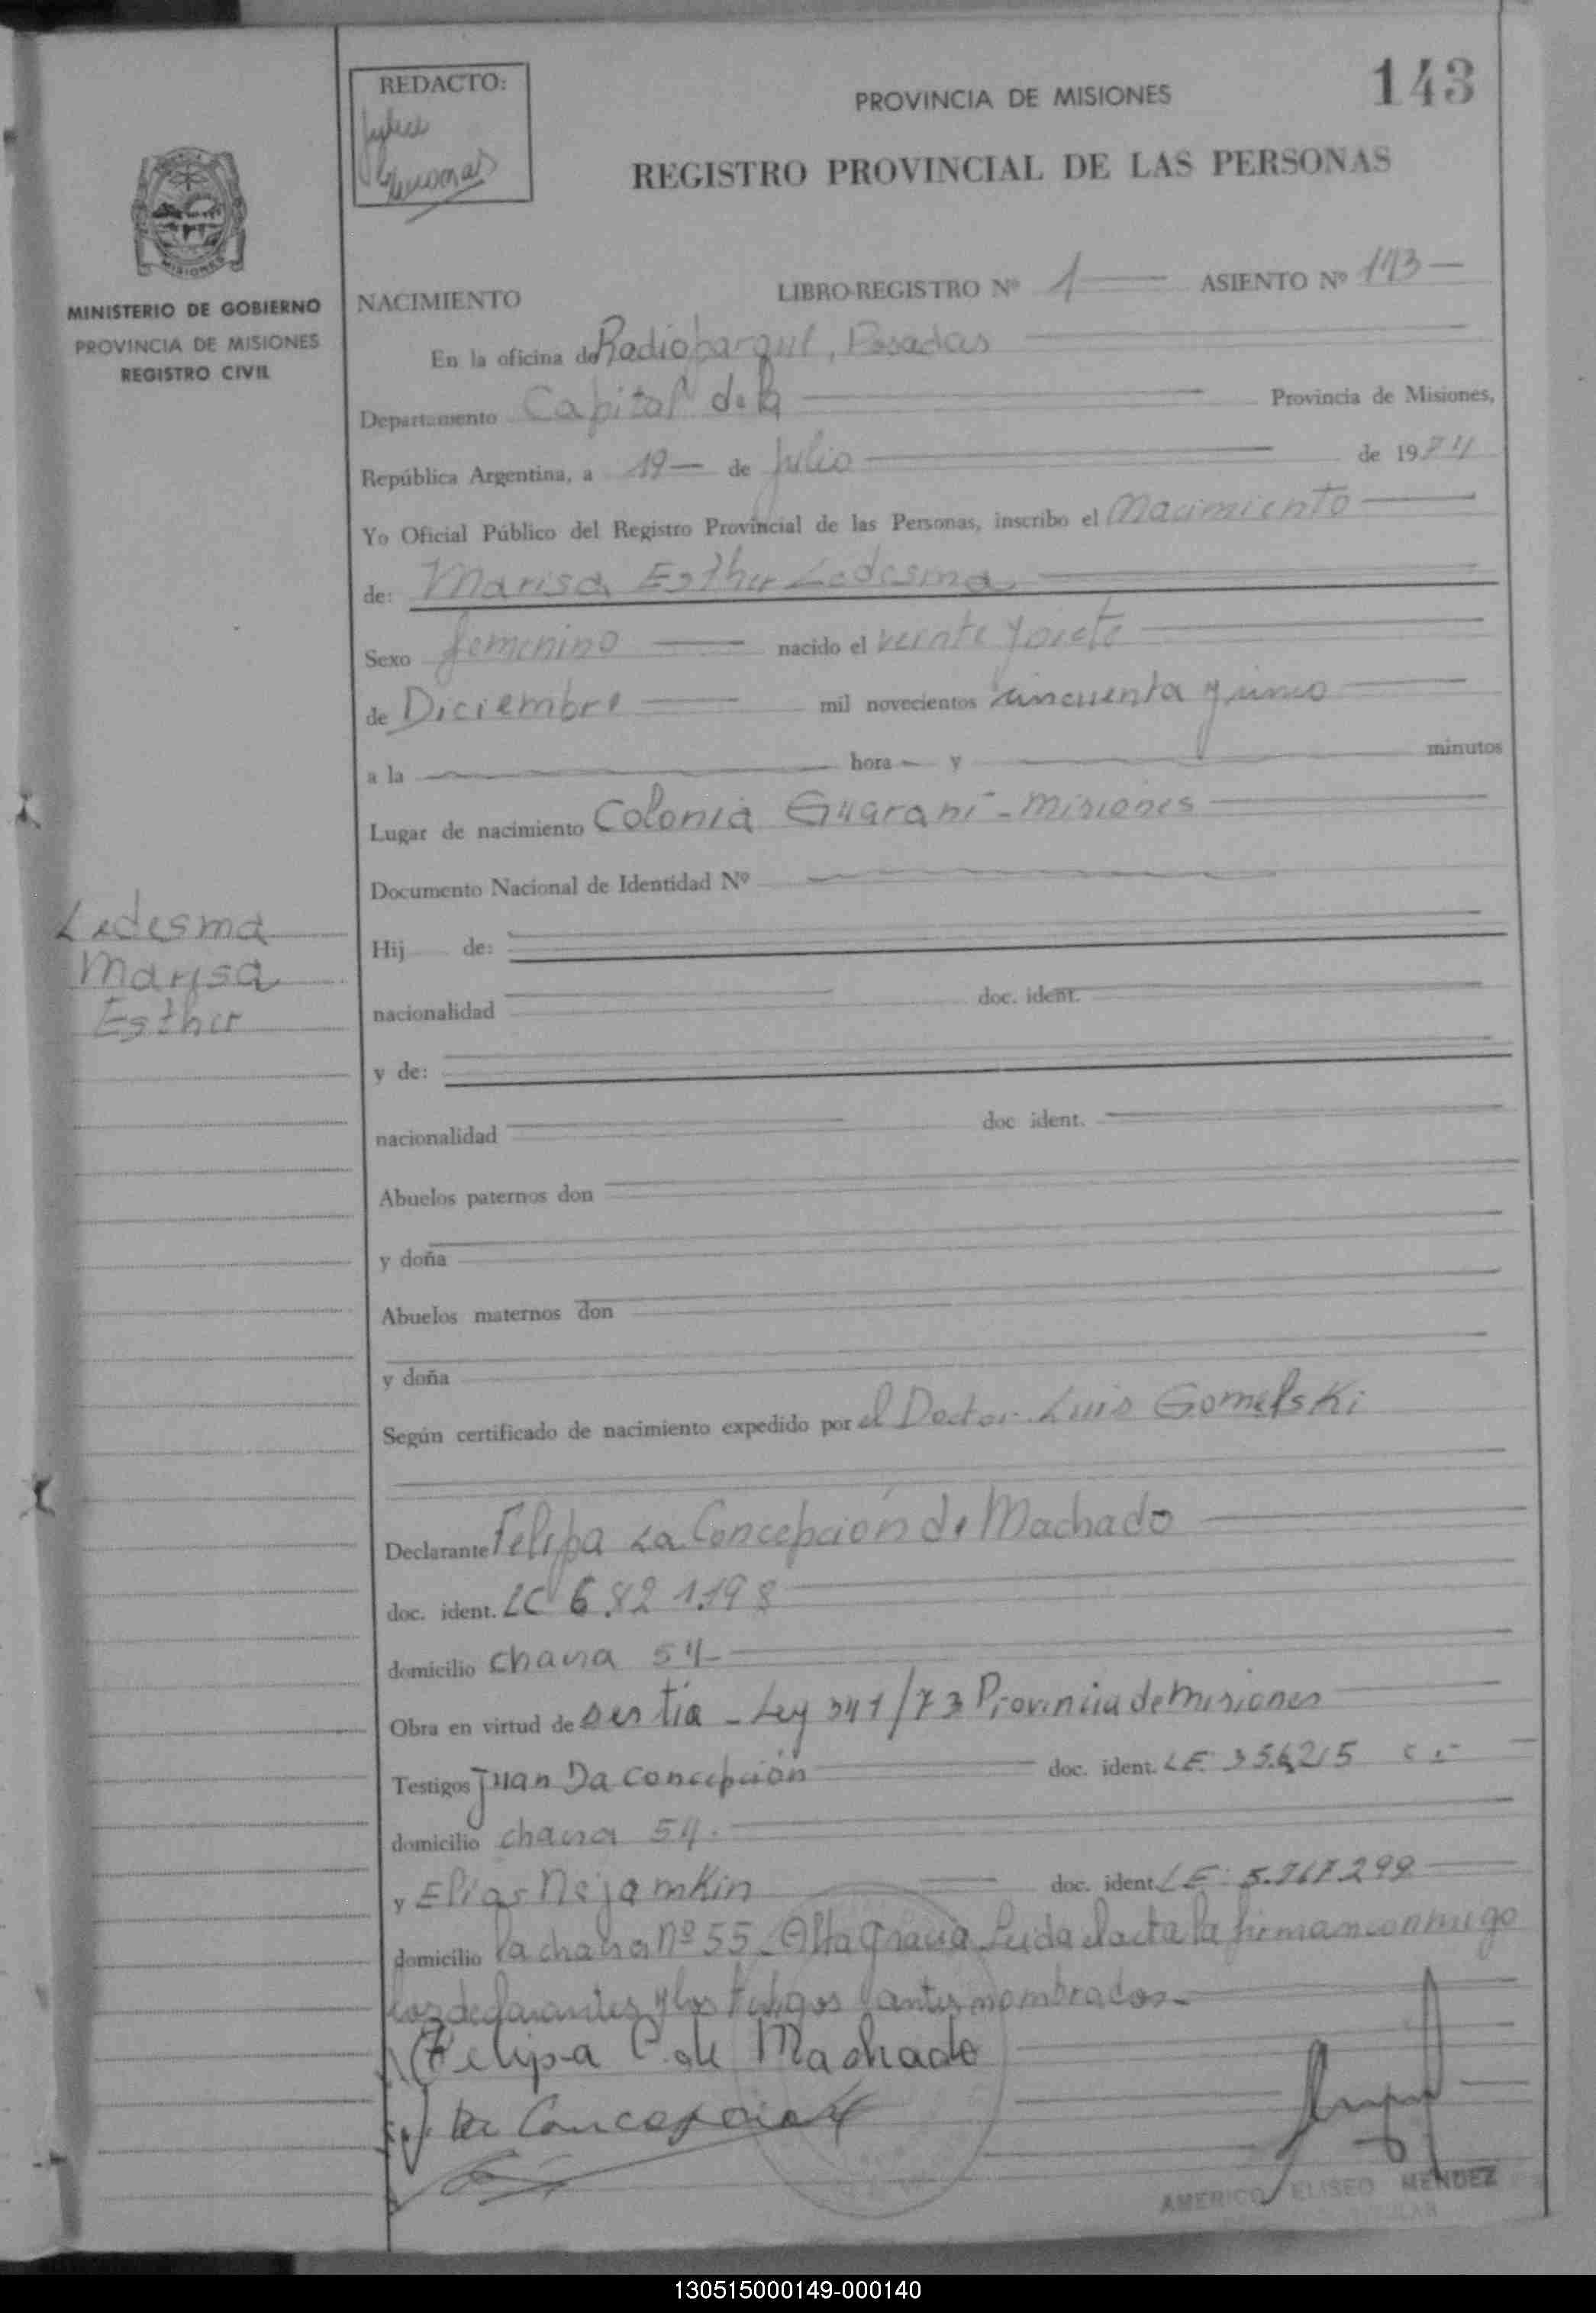 REDACTO:
PROVINCIA DE MISIONES
143
REGISTRO PROVINCIAL DE LAS PERSONAS
MISIONES
MINISTERIO DE GOBIERNO
PROVINCIA DE MISIONES
REGISTRO CIVIL
NACIMIENTO LIBRO-REGISTRO Nº 1 ASIENTO Nº 143
En la oficina de Radioparque, Posadas
Departamento Capital de la Provincia de Misiones,
República Argentina, a 19 de Julio de 1974
Yo Oficial Público del Registro Provincial de las Personas, inscribo el Nacimiento
de: Marisa Esther Ledesma
Sexo femenino nacido el veinte y siete
de Diciembre mil novecientos cincuenta y uno
a la hora y minutos
Lugar de nacimiento Colonia Guarani - Misiones
Documento Nacional de Identidad Nº
Ledesma
Marisa
Esther
Hij de:
nacionalidad doc. ident.
y de:
nacionalidad doc ident.
Abuelos paternos don
y doña
Abuelos maternos don
y doña
Según certificado de nacimiento expedido por el Doctor Luis Gomelski
Declarante Felipa La Concepción de Machado
doc. ident. LC 6.821.198
domicilio chacra 54
Obra en virtud de ser tía - Ley 341/73 Provincia de Misiones
Testigos Juan Da Concepción doc. ident. LE
domicilio chacra 54.
y Elias Nejamkin doc. ident. LE 5.767.299
domicilio la chacra nº 55 - Alta Gracia Leida el acta la firman conmigo
los declarantes y los testigos antes nombrados.-
Felipa C. de Machado
J Da Concepcion
AMERICO ELISEO MENDEZ
130515000149-000140